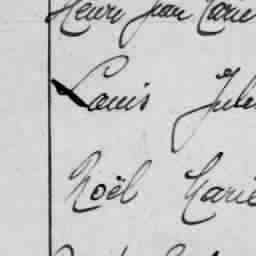 Henri Jean Marie
Louis Jules
Noël Marie